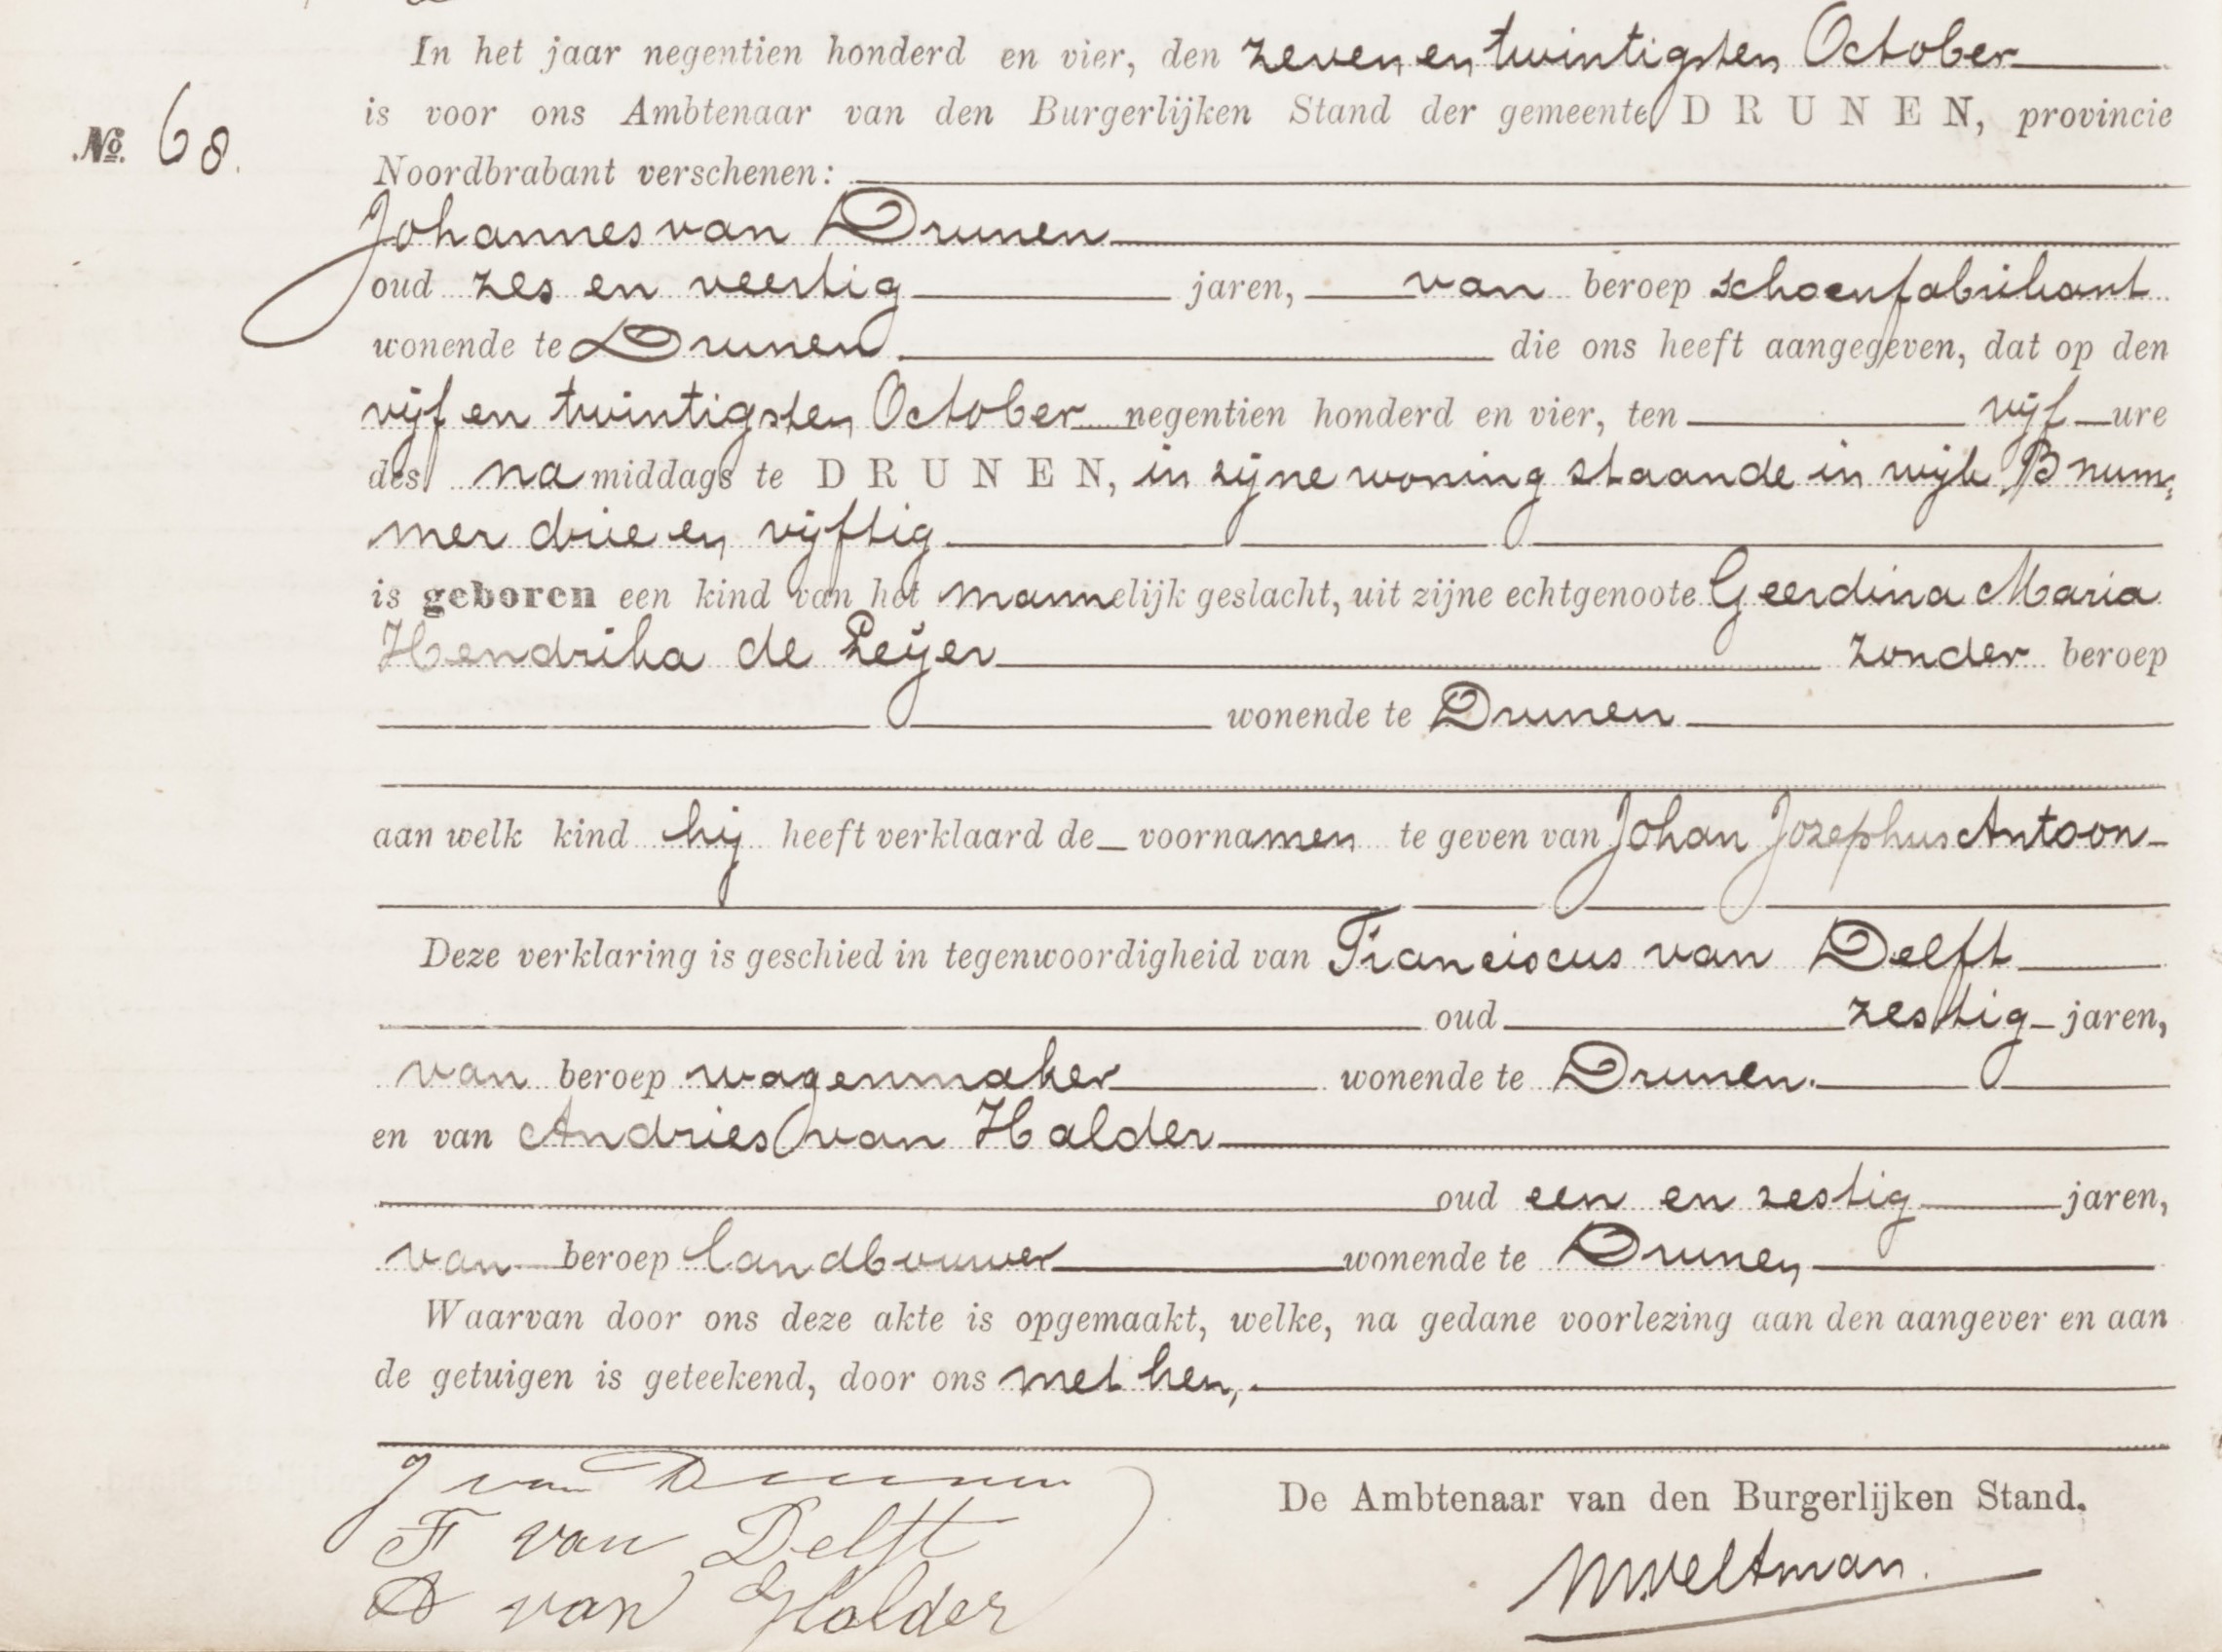 In het jaar negentien honderd en vier, den zeven en twintigsten October
is voor ons Ambtenaar van den Burgerlijken Stand der gemeente DRUNEN, provincie
No. 68.
Noordbrabant verschenen:
Johannes van Drunen
oud zes en veertig jaren, van beroep schoenfabrikant
wonende te Drunen die ons heeft aangegeven, dat op den
vijf en twintigsten October negentien honderd en vier, ten vijf ure
des na middags te DRUNEN, in zijne woning staande in wijk B num-
mer drie en vijftig
is geboren een kind van het mannelijk geslacht, uit zijne echtgenoote Geerdina Maria
Hendrika de Peijer zonder beroep
wonende te Drunen
aan welk kind hij heeft verklaard de voornamen te geven van Johan Jozephus Antoon
Deze verklaring is geschied in tegenwoordigheid van Franciscus van Delft
oud zestig jaren,
van beroep wagenmaker wonende te Drunen.
en van Andries van Halder
oud een en zestig jaren,
van beroep landbouwer wonende te Drunen
Waarvan door ons deze akte is opgemaakt, welke, na gedane voorlezing aan den aangever en aan
de getuigen is geteekend, door ons met hen,
J van Drunen
F van Delft
A van Halder
De Ambtenaar van den Burgerlijken Stand.
M Veltman.